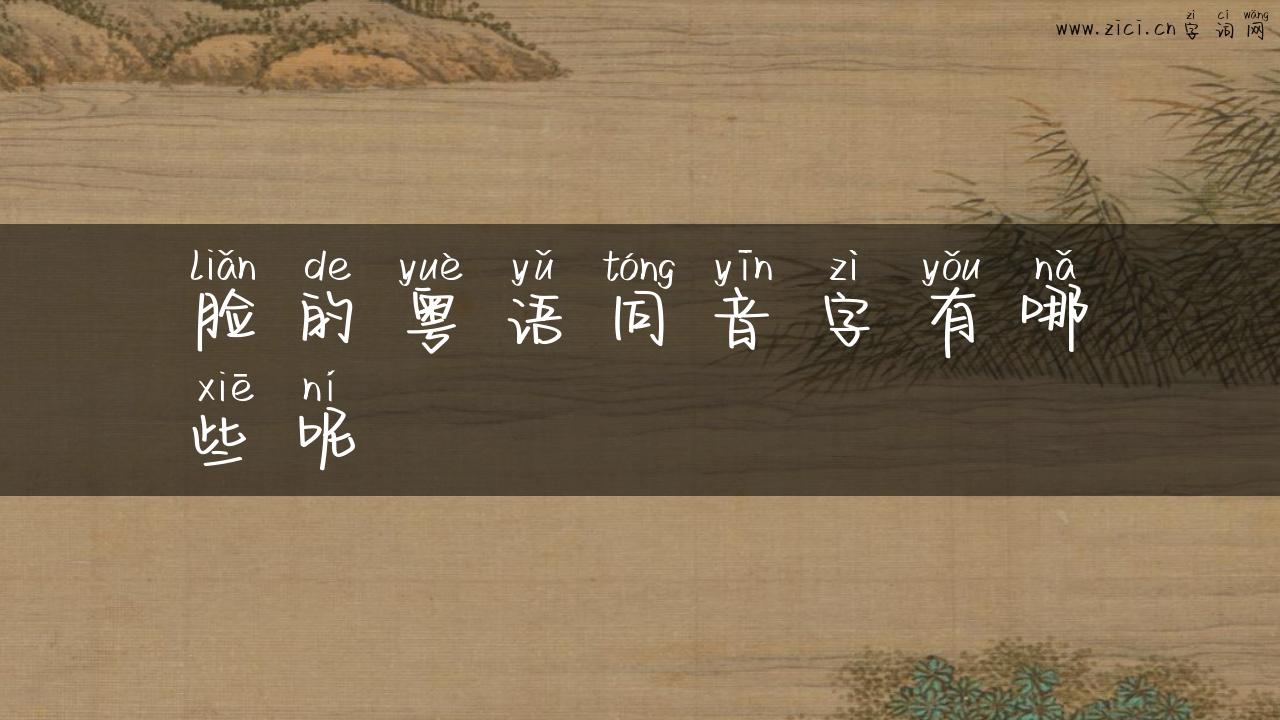 zì cí wǎng
www.zici.cn 字词网
liǎn de yuè yǔ tóng yīn zì yǒu nǎ
脸的粤语同音字有哪
xiē ní
些呢